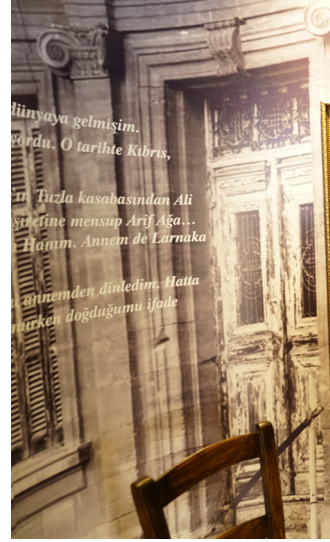 dünyaya gelmişim.
O tarihte Kıbrıs,
Tuzla kasabasından Ali
mensup Arif Ağa...
Hanım. Annem de Larnaka
annemden dinledim. Hatta
doğduğumu ifade